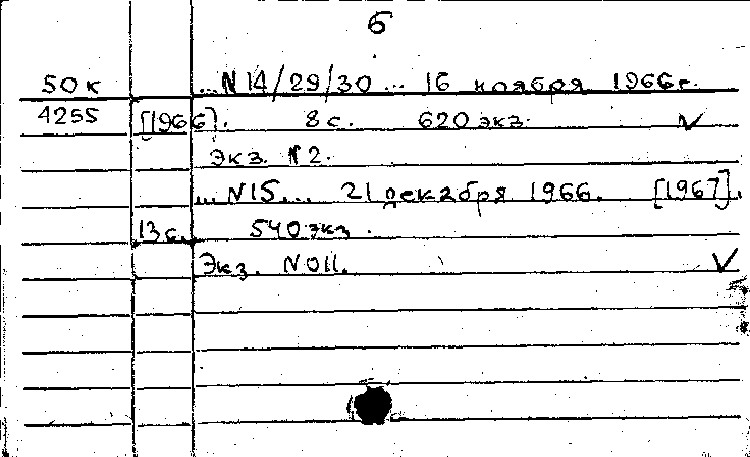 6
50к ...N14/29/30... 16 ноября 1966г.
4255 [1966]. 8с. 620экз. V
Экз. N2.
...N15.... 21 декабря 1966. [1967].
13с. 540экз.
Экз. N011. V